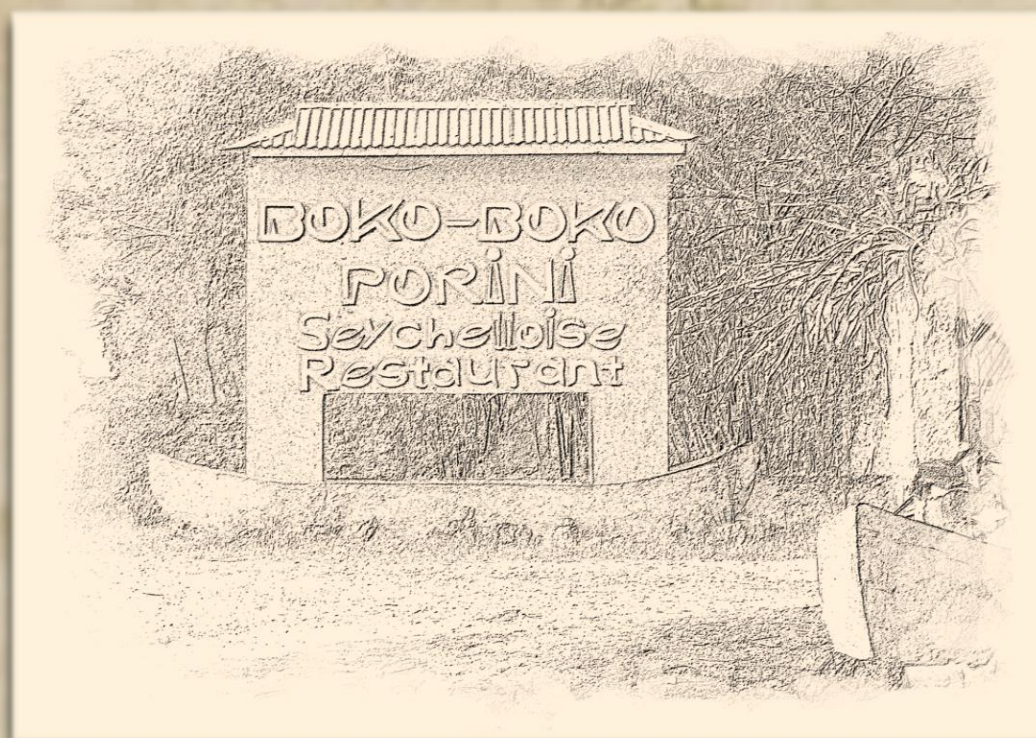 BOKO-BOKO
PORINI
Seychelloise
Restaurant